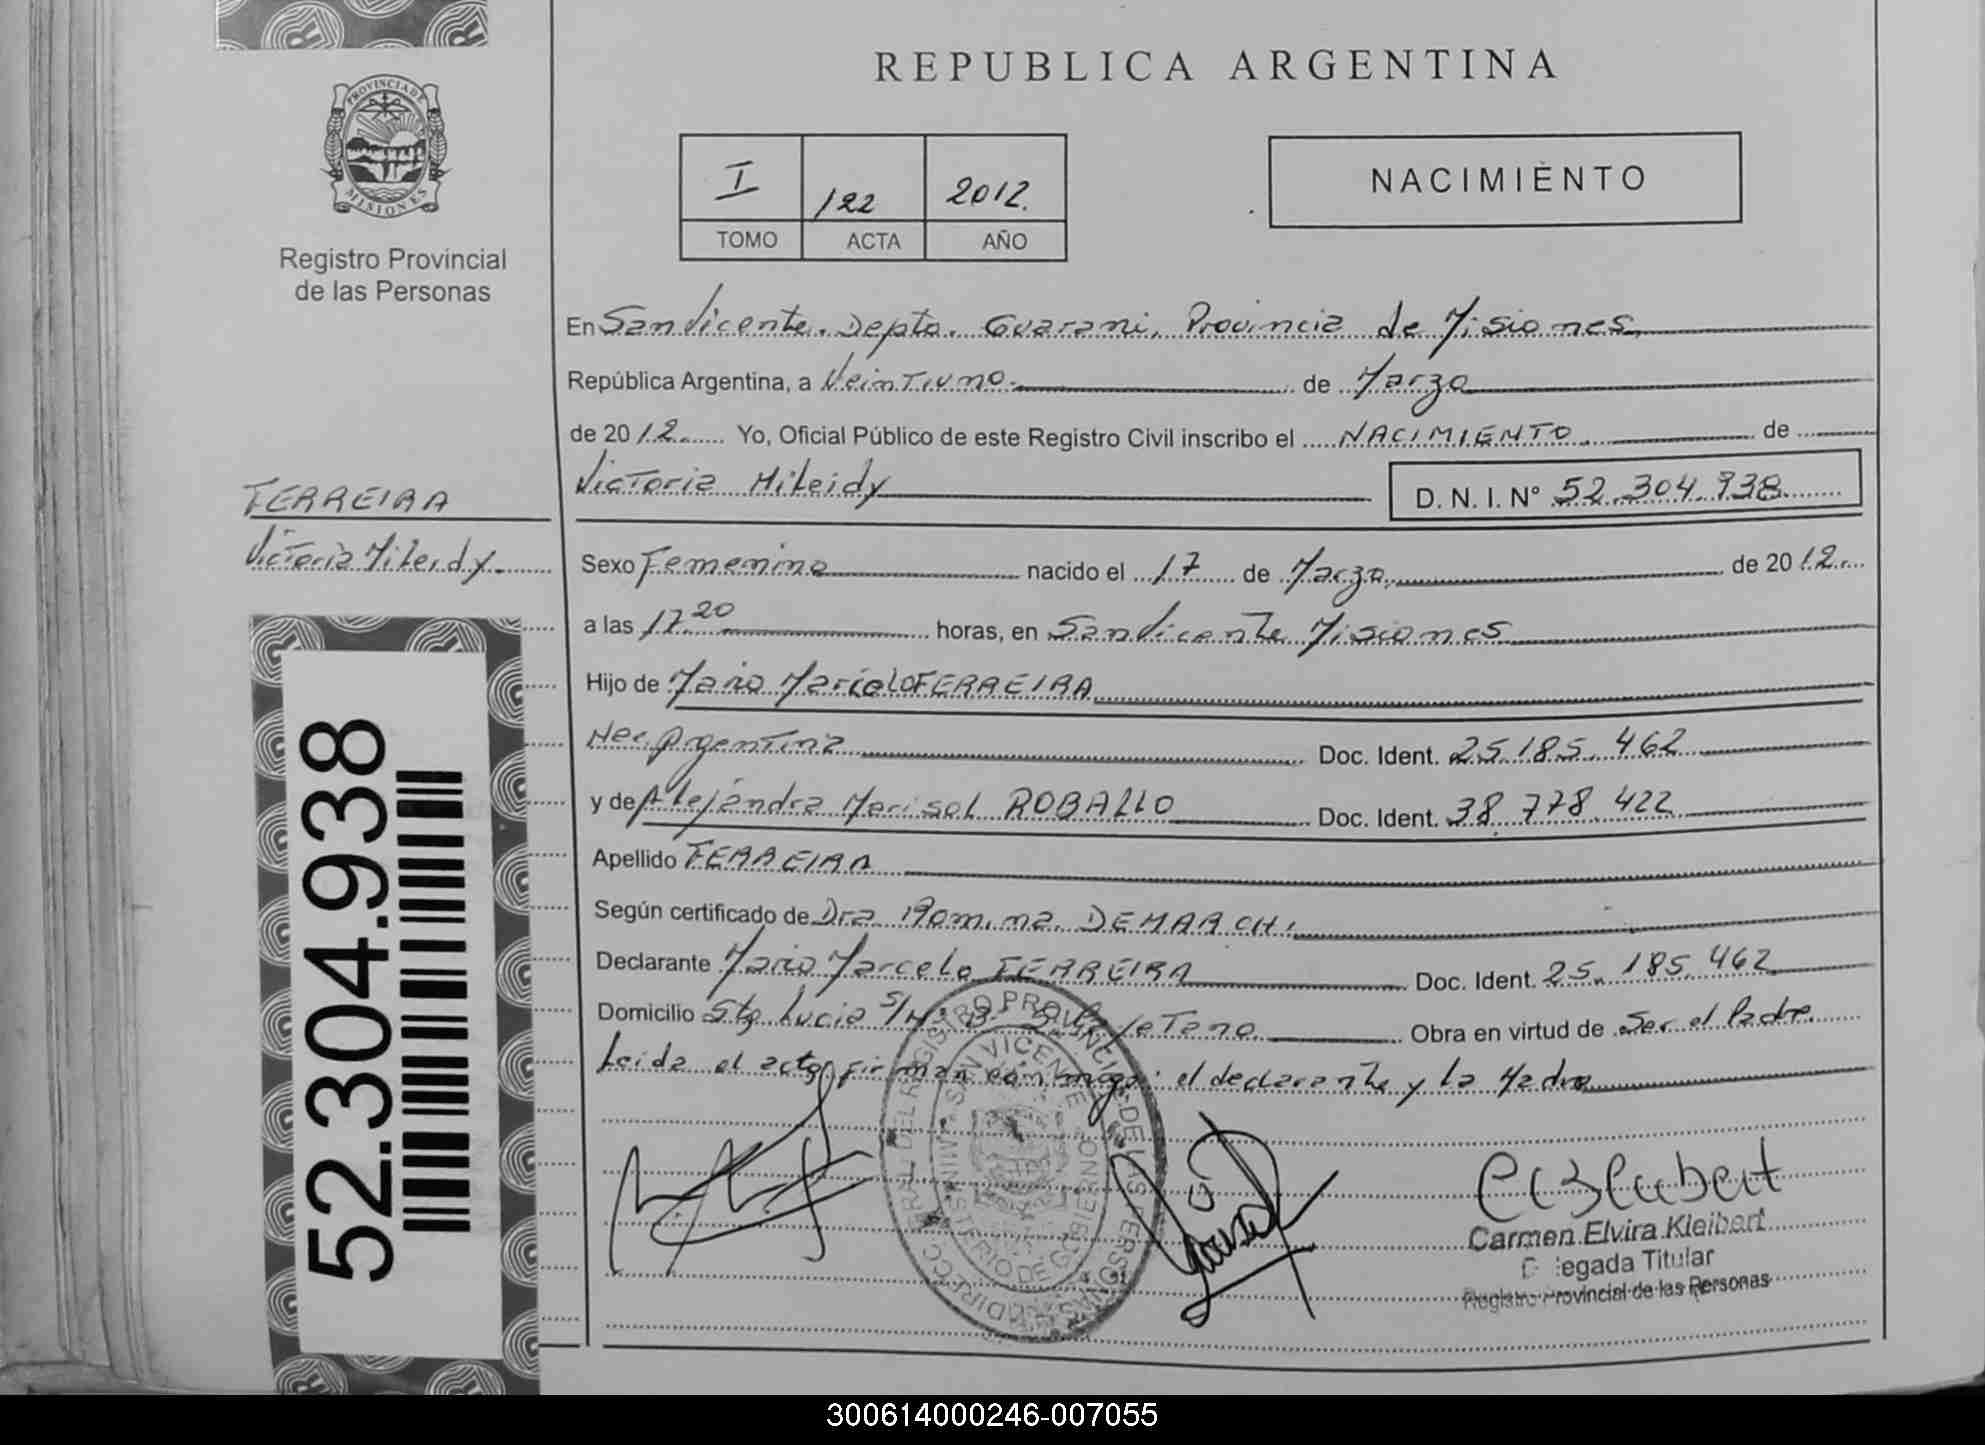 REPUBLICA ARGENTINA
PROVINCIA DE
MISIONES
Registro Provincial
de las Personas
I 122 2012.
TOMO ACTA AÑO
NACIMIENTO
En San Vicente. Depto. Guarani, Provincia de Misiones
República Argentina, a Veintiuno. de Marzo
de 2012 Yo, Oficial Público de este Registro Civil inscribo el NACIMIENTO de
Victoria Mileidy
D. N. I. N° 52.304.938
FERREIRA
Victoria Mileidy
Sexo Femenino nacido el 17 de Marzo de 2012
a las 17 20 horas, en San Vicente Misiones
Hijo de Mario Marcelo FERREIRA
Nac. Argentina Doc. Ident. 25.185.462
y de Alejandra Marisol ROBALLO Doc. Ident. 38.778.422
Apellido FERREIRA
Según certificado de Dra. Romina DEMARCHI
Declarante Mario Marcelo FERREIRA Doc. Ident. 25.185.462
Domicilio Sta Lucia S/N° B° Obra en virtud de Ser el Padre
Leida el acta firman conmigo: el declarante y la Madre
52.304.938
SAN VICENTE
MINISTERIO DE GOBIERNO
Carmen Elvira Kleibert
Delegada Titular
Registro Provincial de las Personas
300614000246-007055